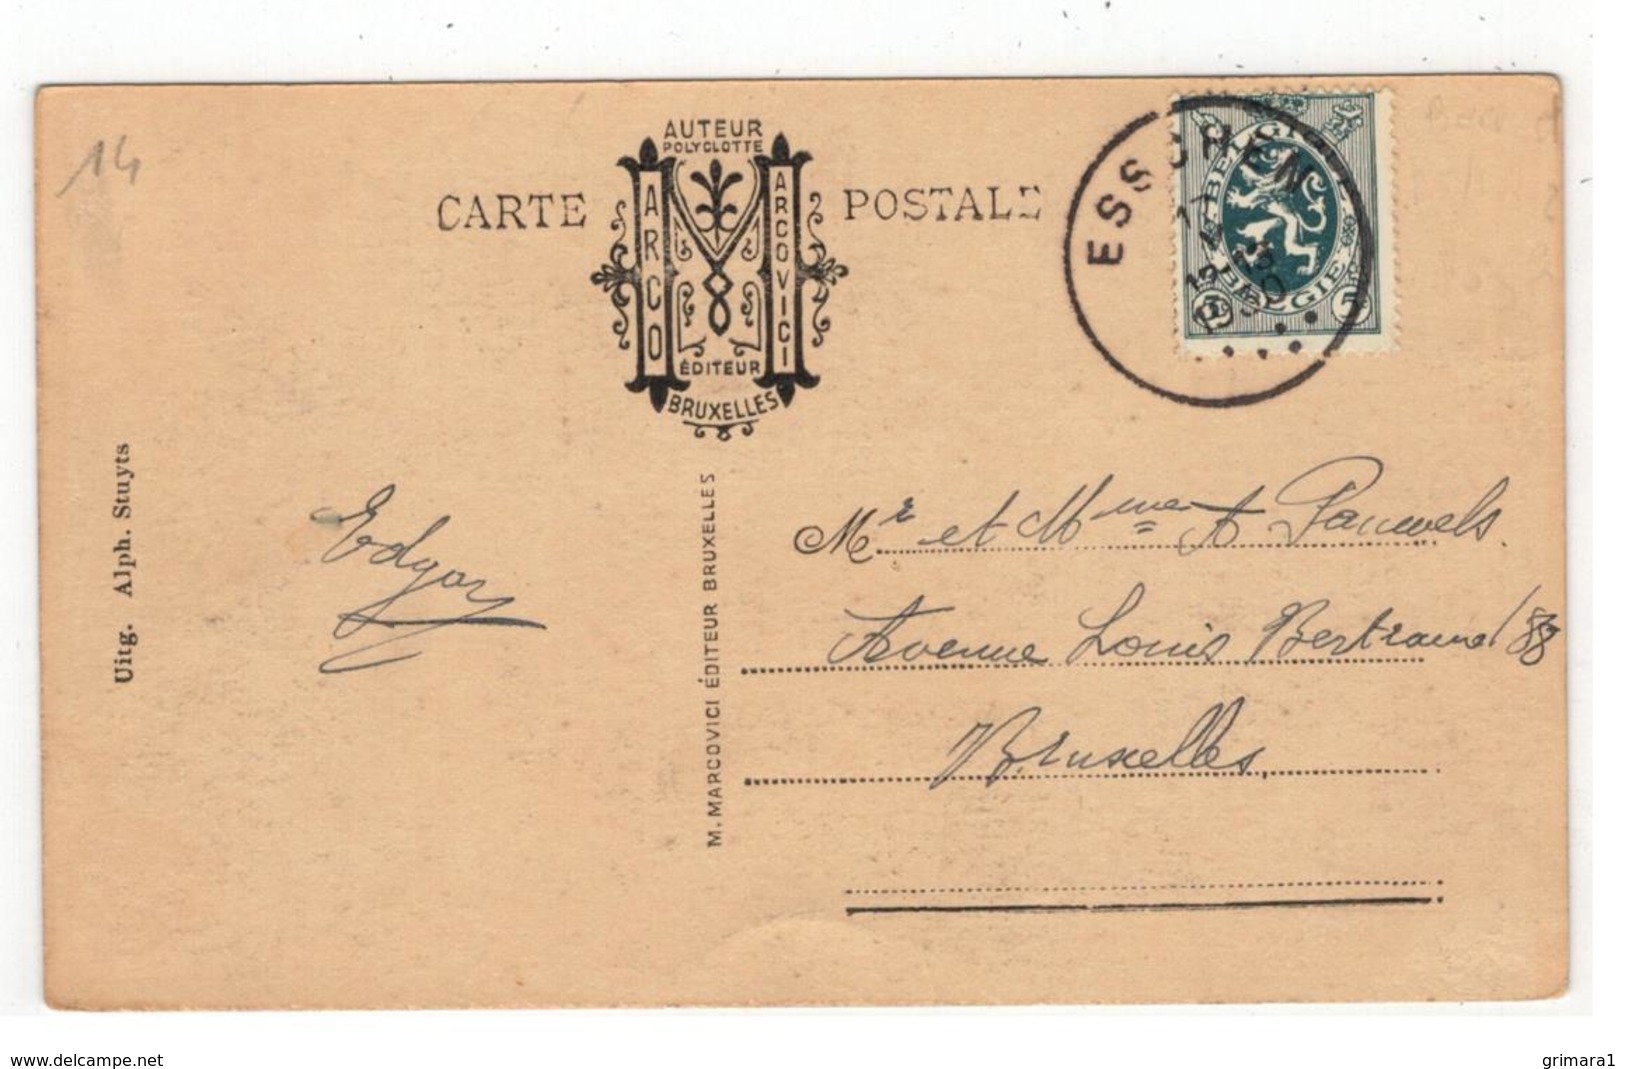 14
AUTEUR
POLYGLOTTE
CARTE POSTALE
MARCO MARCOVICI
ÉDITEUR
BRUXELLES
ESSCHEN
1930
BELGIQUE
BELGIË
5 5
Uitg. Alph. Stuyts
Edgar
M. MARCOVICI ÉDITEUR BRUXELLES
Mr et Mme A Pauwels.
Avenue Louis Bertrand / 88
Bruxelles,
www.delcampe.net
grimara1